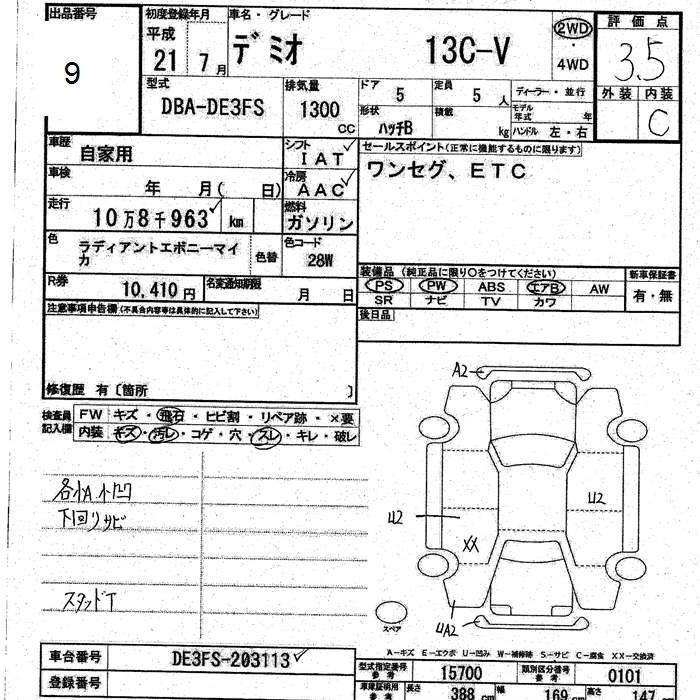 出品番号
9
初度登録年月
平成
21 7月
車名・グレード
デミオ 13C-V
2WD
・
4WD
評価点
3.5
外装 内装
C
型式
DBA-DE3FS
排気量
1300
CC
ドア
5
定員
5人
ディーラー・並行
形状
ハッチB
積載
kg
モデル年式 年
ハンドル 左・右
車歴
自家用
シフト
IAT
車検
年 月( 日)
冷房
AAC
走行
10万8千963 km
燃料
ガソリン
色
ラディアントエボニーマイカ
色替
色コード
28W
R券
10,410円
名変通知期限
月 日
セールスポイント(正常に機能するものに限ります)
ワンセグ、ETC
装備品(純正品に限り○をつけてください)
PS PW ABS エアB AW
SR ナビ TV カワ
新車保証書
有・無
後日品
注意事項申告欄(不具合内容等は具体的に記入して下さい)
修復歴 有〔箇所 〕
検査員記入欄
FW キズ・飛石・ヒビ割・リペア跡・×要
内装 キズ・汚レ・コゲ・穴・スレ・キレ・破レ
各小A、小凹
下回りサビ
スタッドT
A2
U2
U2
XX
UA2
スペア
A-キズ E-エクボ U-凹み W-補修跡 S-サビ C-腐食 XX-交換済
車台番号
DE3FS-203113
登録番号
型式指定番号
参考
15700
類別区分番号
参考
0101
車庫証明用
参考
長さ
388 cm
幅
169 cm
高さ
147 cm